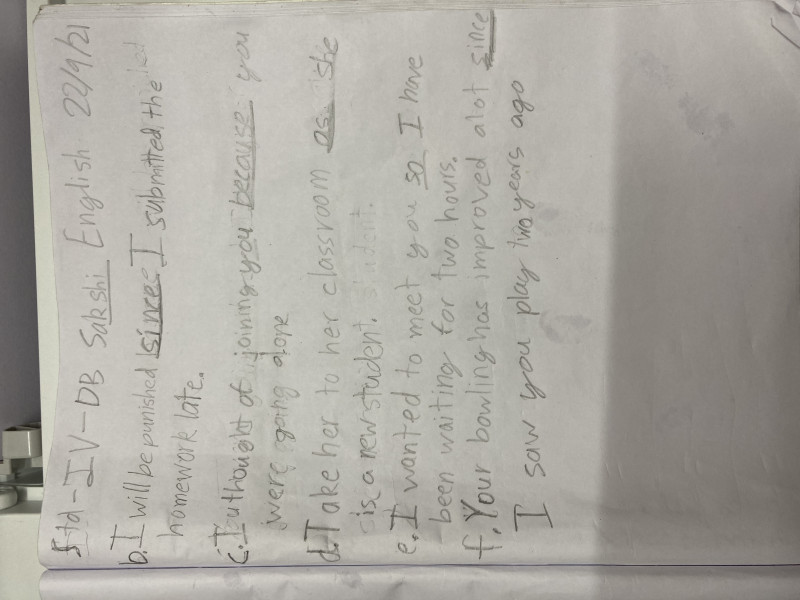 Std-IV-DB Sakshi English 22/9/21
b. I will be punished since I submitted the
homework late.
c. I uthought of joining you because you
were going alone
d. Take her to her classroom as she
is a new student.
e. I wanted to meet you so I have
been waiting for two hours.
f. Your bowling has improved alot since
I saw you play two years ago